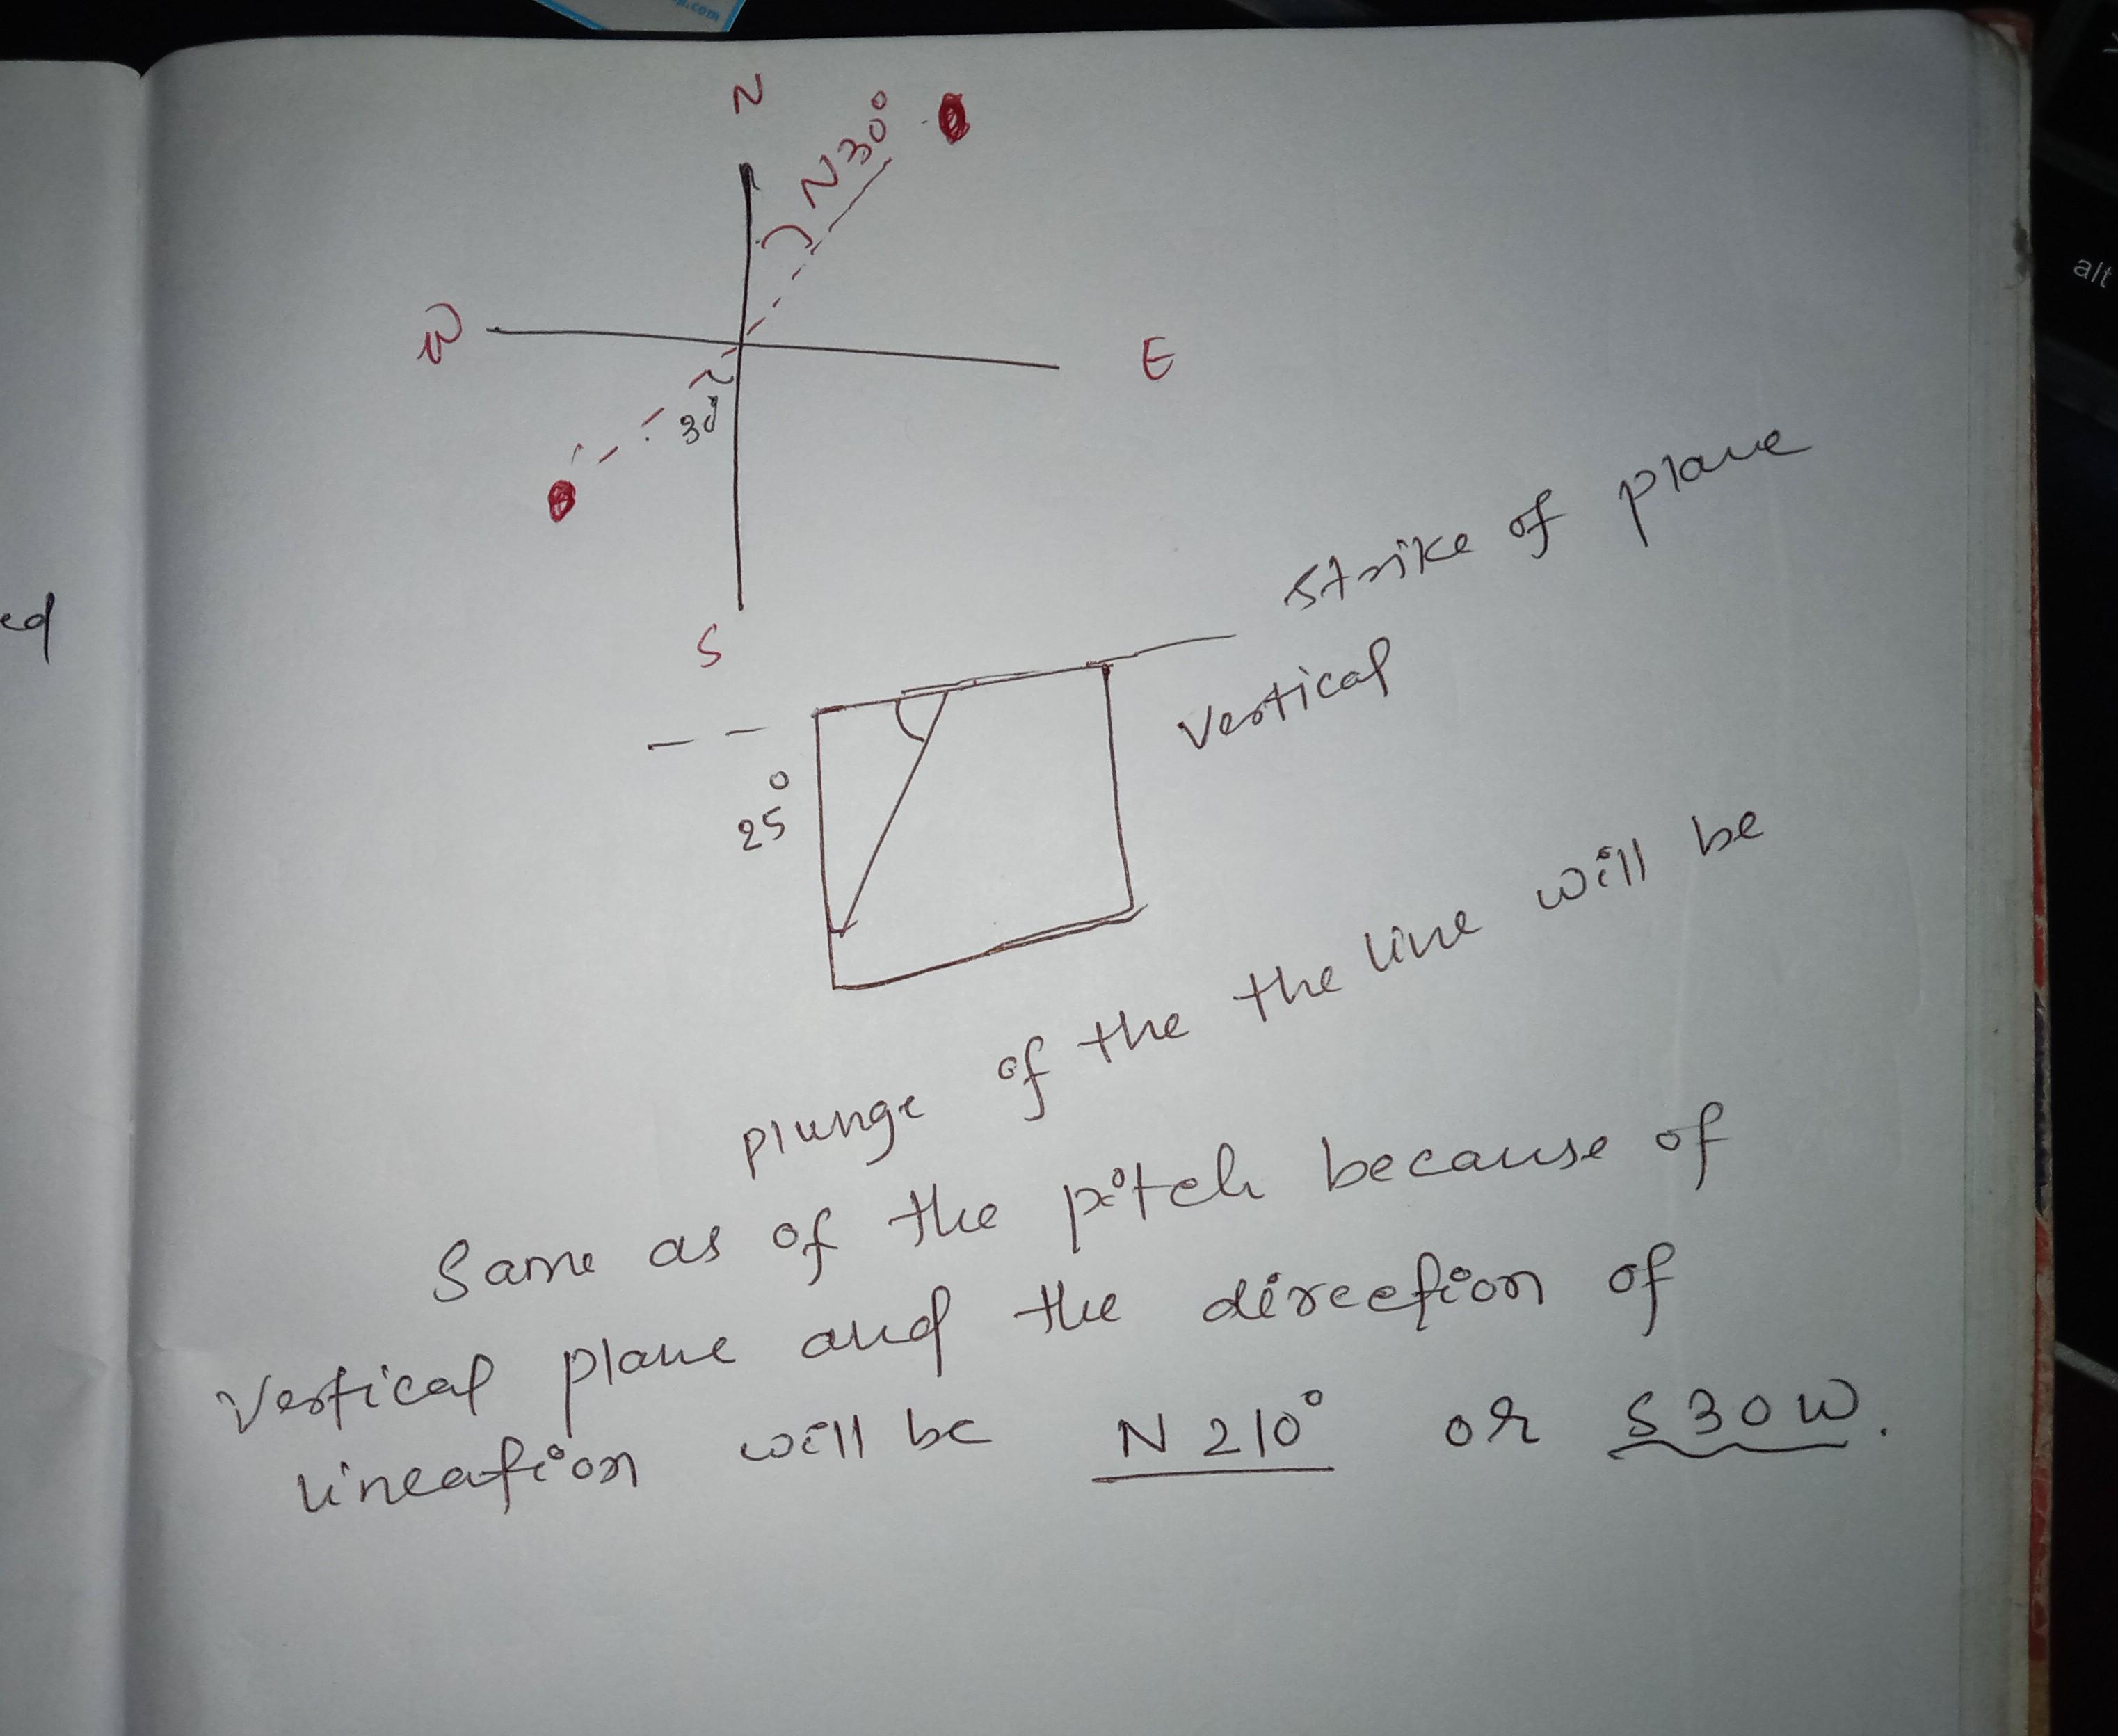 p.com
N
N30°
W
E
30°
S
alt
ed
strike of plane
vertical
25°
plunge of the the line will be
Same as of the pitch because of
vertical plane and the direction of
lineation will be N 210° or S 30 W.